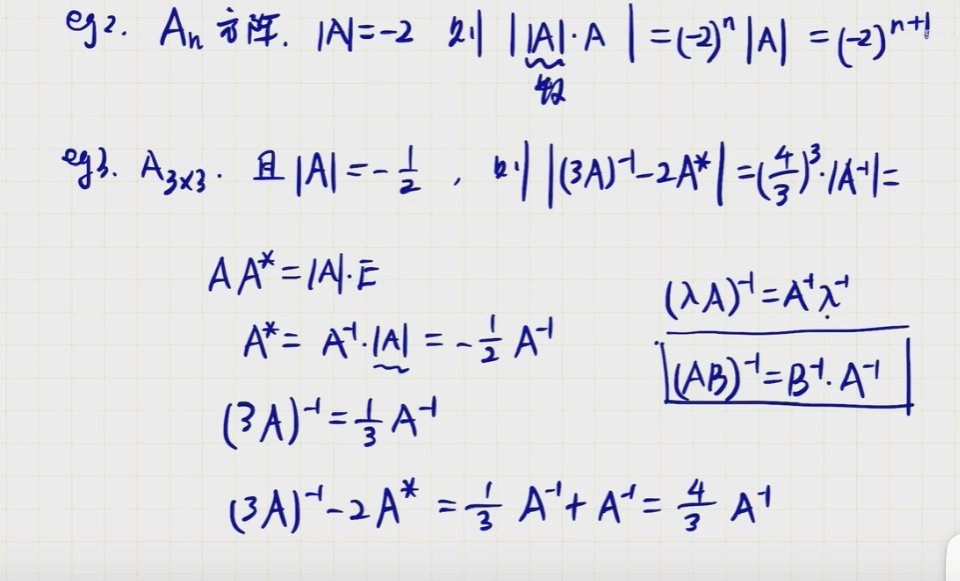 eg2. Aₙ 方阵. |A|=-2 则 | |A|·A | =(-2)ⁿ |A| =(-2)ⁿ⁺¹
数
eg3. A₃ₓ₃. 且 |A|=-1/2 , 则 |(3A)⁻¹-2A*| =(4/3)³·|A⁻¹|=
AA*=|A|·E
(λA)⁻¹=A⁻¹λ⁻¹
A*= A⁻¹·|A| = -1/2 A⁻¹
(AB)⁻¹=B⁻¹·A⁻¹
(3A)⁻¹=1/3 A⁻¹
(3A)⁻¹-2A* =1/3 A⁻¹+A⁻¹= 4/3 A⁻¹